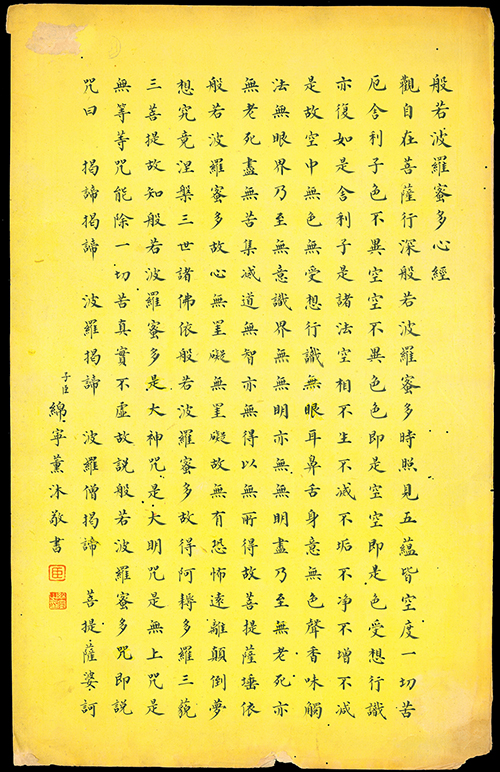 般若波羅蜜多心經
觀自在菩薩行深般若波羅蜜多時照見五蘊皆空度一切苦
厄舍利子色不異空空不異色色即是空空即是色受想行識
亦復如是舍利子是諸法空相不生不滅不垢不净不增不減
是故空中無色無受想行識無眼耳鼻舌身意無色聲香味觸
法無眼界乃至無意識界無無明亦無無明盡乃至無老死亦
無老死盡無苦集滅道無智亦無得以無所得故菩提薩埵依
般若波羅蜜多故心無罣礙無罣礙故無有恐怖遠離顛倒夢
想究竟涅槃三世諸佛依般若波羅蜜多故得阿耨多羅三藐
三菩提故知般若波羅蜜多是大神咒是大明咒是無上咒是
無等等咒能除一切苦真實不虛故說般若波羅蜜多咒即說
咒曰 揭諦揭諦 波羅揭諦 波羅僧揭諦 菩提薩婆訶
子臣綿寧薰沐敬書